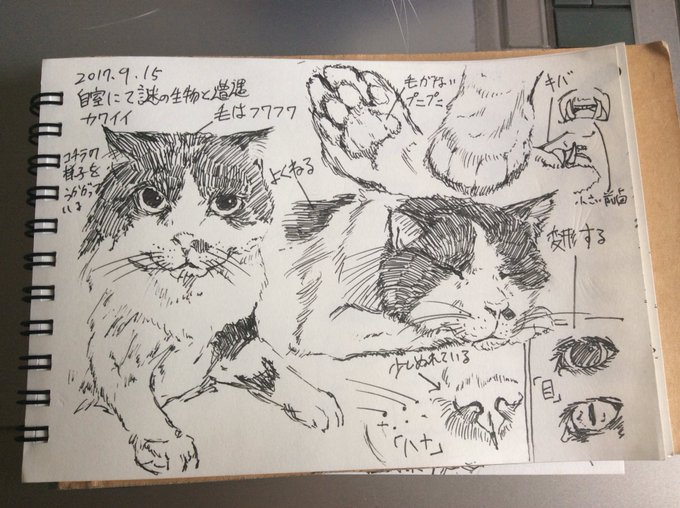 2017.9.15
自室にて謎の生物と遭遇
カワイイ
毛はフワフワ
コチラの
様子を
うかがって
いる
よくねる
毛がない
プニプニ
キバ
小さい前歯
変形する
少しぬれている
「ハナ」
「目」